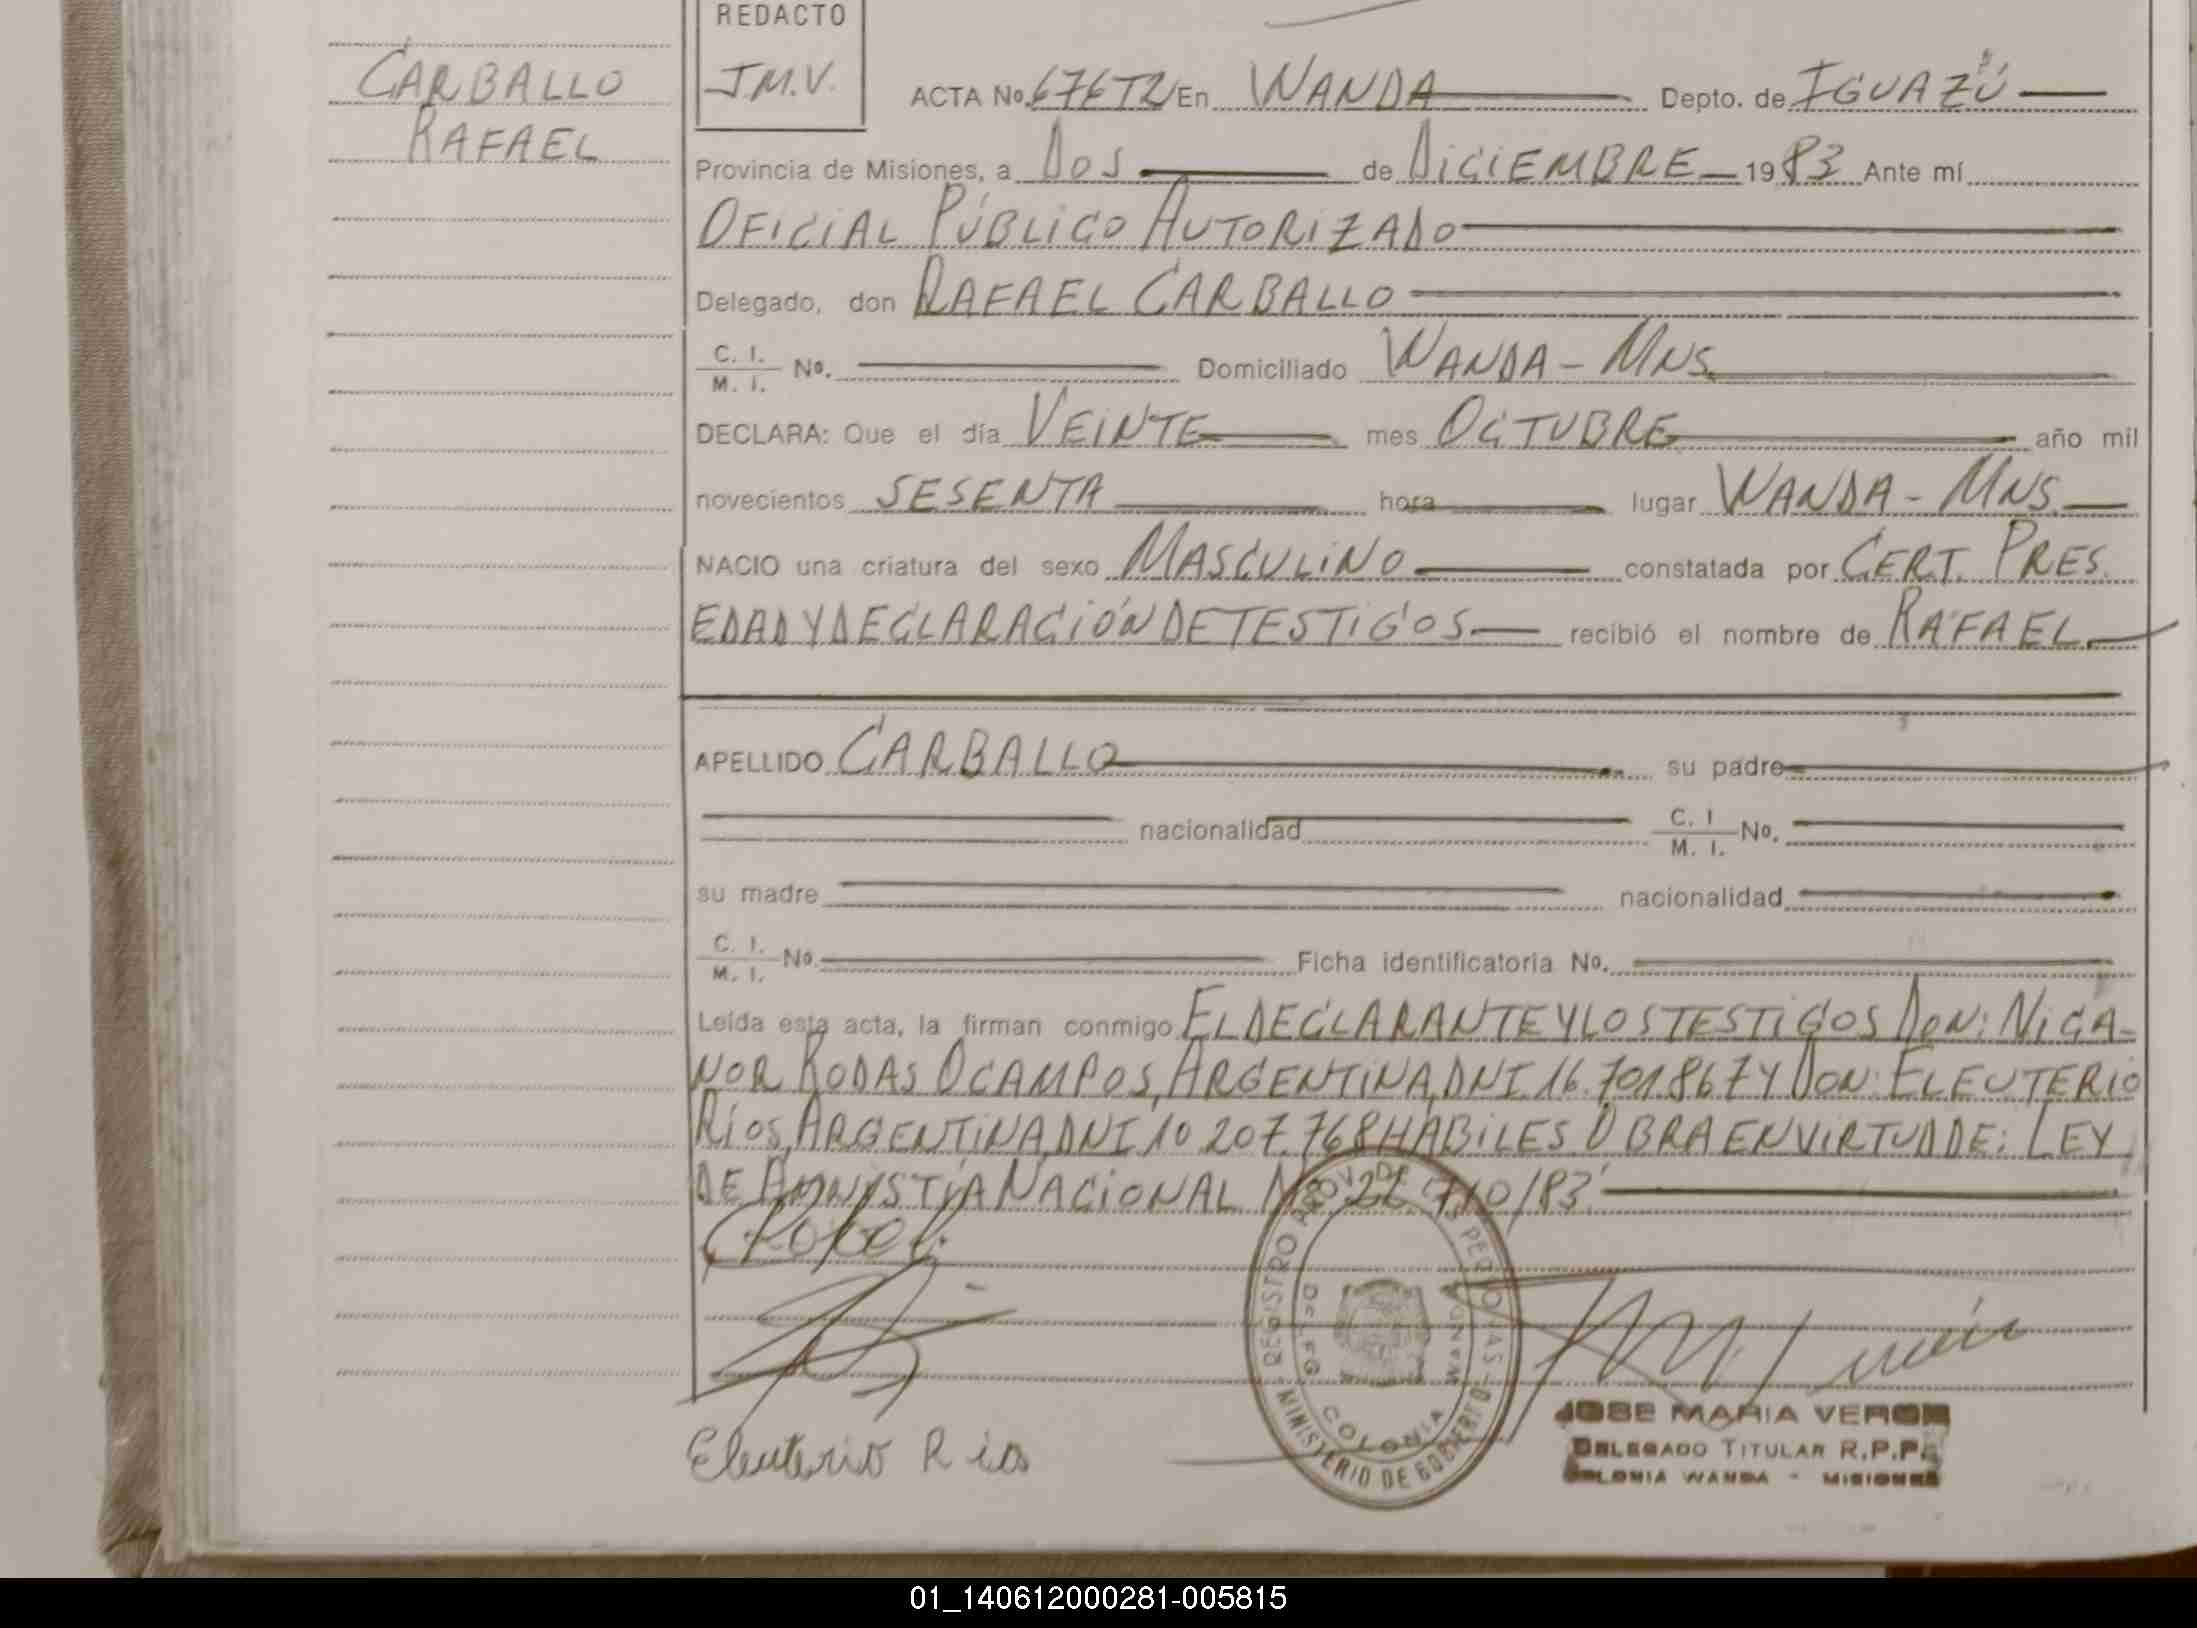 CARBALLO
RAFAEL
REDACTO
J.M.V.
ACTA No. 676T2 En WANDA Depto. de IGUAZÚ
Provincia de Misiones, a DOS de DICIEMBRE 1983 Ante mí
OFICIAL PÚBLICO AUTORIZADO
Delegado, don RAFAEL CARBALLO
C. I. M. I. No. Domiciliado WANDA - MNS.
DECLARA: Que el día VEINTE mes OCTUBRE año mil
novecientos SESENTA hora lugar WANDA - MNS.
NACIO una criatura del sexo MASCULINO constatada por CERT. PRES.
EDAD Y DECLARACIÓN DE TESTIGOS recibió el nombre de RAFAEL.
APELLIDO CARBALLO su padre
nacionalidad C. I M. I. No.
su madre nacionalidad
C. I. M. I. No. Ficha identificatoria No.
Leída esta acta, la firman conmigo EL DECLARANTE Y LOS TESTIGOS DON: NICA-
NOR RODAS OCAMPOS, ARGENTINA, DNI 16.701.867 Y DON: ELEUTERIO
RÍOS, ARGENTINA, DNI 10 207.768 HABILES OBRA EN VIRTUD DE: LEY
DE AMNISTÍA NACIONAL Nº 22.710/83
REGISTRO PROV. DE LAS PERSONAS
MINISTERIO DE GOBIERNO
COLONIA WANDA
Eleuterio Rios
JOSE MARIA VERON
DELEGADO TITULAR R.P.P.
COLONIA WANDA - MISIONES
01_140612000281-005815